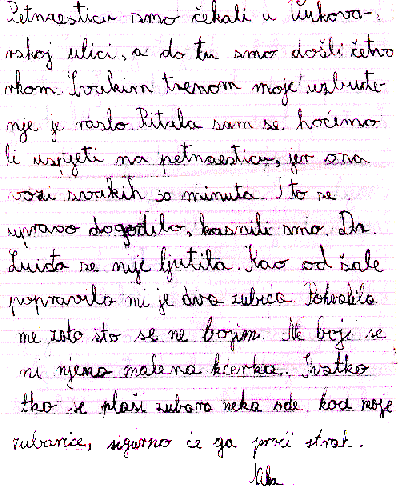 Petnaesticu smo čekali u Vukova-
rskoj ulici, a do tu smo došli četvo
rkom. Svakim trenom moje uzbuđe-
nje je raslo. Pitala sam se hoćemo
li uspjeti na petnaesticu, jer ona
vozi svakih 20 minuta. I to se
upravo dogodilo, kasnili smo. Dr.
Luiđa se nije ljutila. Kao od šale
popravila mi je dva zubića. Pohvalila
me zato što se ne bojim. Ne boji se
ni njena malena kćerka. Svatko
tko se plaši zubara neka ode kod moje
zubarice, sigurno će ga proći strah.